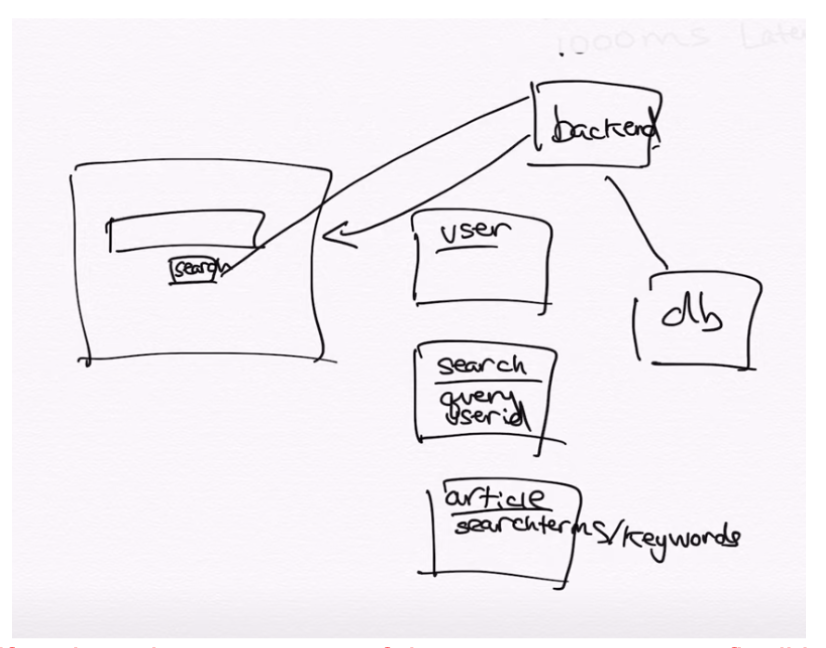 1000ms Late
backend
user
search
db
search
query
userid
article
searchterms/keywords